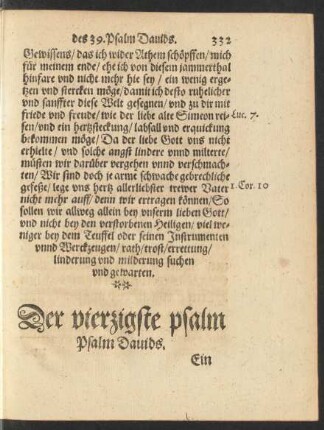 des 39. Psalm Dauids. 332
Gewissens / das ich wider Athem schöpffen / mich
für meinem ende / ehe ich von diesem jammerthal
hinfare vnd nicht mehr hie sey / ein wenig erge-
tzen vnd stercken möge / damit ich desto ruhelicher
vnd sanffter diese Welt gesegnen / vnd zu dir mit
friede vnd freude / wie der liebe alte Simeon rei- Luc. 7.
sen / vnd ein hertzsteckung / labsall vnd erquickung
bekommen möge / Da der liebe Gott vns nicht
erhielte / vnd solche angst lindere vnnd milterte /
müsten wir darüber vergehen vnnd verschmach-
ten / Wir sind doch je arme schwache gebrechliche
gesesse / lege vns hertz allerliebster trewer Vater 1. Cor. 10
nicht mehr auff / denn wir ertragen können / So
sollen wir allweg allein bey vnserm lieben Gott /
vnd nicht bey den verstorbenen Heiligen / viel we-
niger bey dem Teuffel oder seinen Instrumenten
vnnd Werckzeugen / rath / trost / errettung /
linderung vnd milderung suchen
vnd gewarten.
Der vierzigste psalm
Psalm Dauids.
Ein